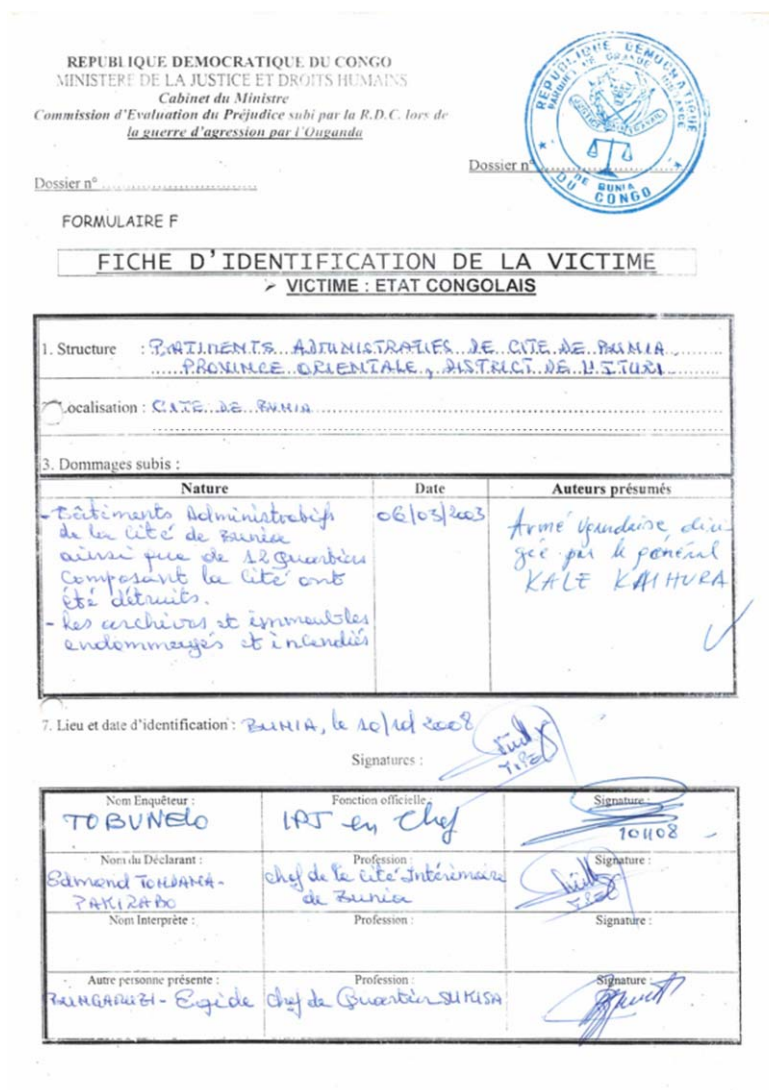 REPUBLIQUE DEMOCRATIQUE DU CONGO
MINISTERE DE LA JUSTICE ET DROITS HUMAINS
Cabinet du Ministre
Commission d'Evaluation du Préjudice subi par la R.D.C. lors de
la guerre d'agression par l'Ouganda
REPUBLIQUE DEMOCRATIQUE
PARQUET DE GRANDE INSTANCE
DE BUNIA
DU CONGO
Dossier n°
Dossier n°
FORMULAIRE F
FICHE D'IDENTIFICATION DE LA VICTIME
➢ VICTIME : ETAT CONGOLAIS
1. Structure : BATIMENTS ADMINISTRATIFS DE CITE DE BUNIA
PROVINCE ORIENTALE, DISTRICT DE L'ITURI
Localisation : CITE DE BUNIA
3. Dommages subis :
Nature Date Auteurs présumés
- Bâtiments Administratifs
de la cité de Bunia
ainsi que de 12 Quartiers
Composant la Cité ont
été détruits.
- Les archives et immeubles
endommagés et incendiés
06/03/2003
Armé Ugandaise diri-
gée par le général
KALE KAIHURA
7. Lieu et date d'identification : BUNIA, le 10/10/2008
Signatures :
Nom Enquêteur : Fonction officielle : Signature :
TOBUNELO IPJ en Chef 101108
Nom du Déclarant : Profession : Signature :
Edmond TONDAMA-
PAKIRABO
chef de la cité Intérimaire
de Bunia
Nom Interprète : Profession : Signature :
Autre personne présente : Profession : Signature :
BUNGAMUZI - Egide chef de Quartier SUKISA